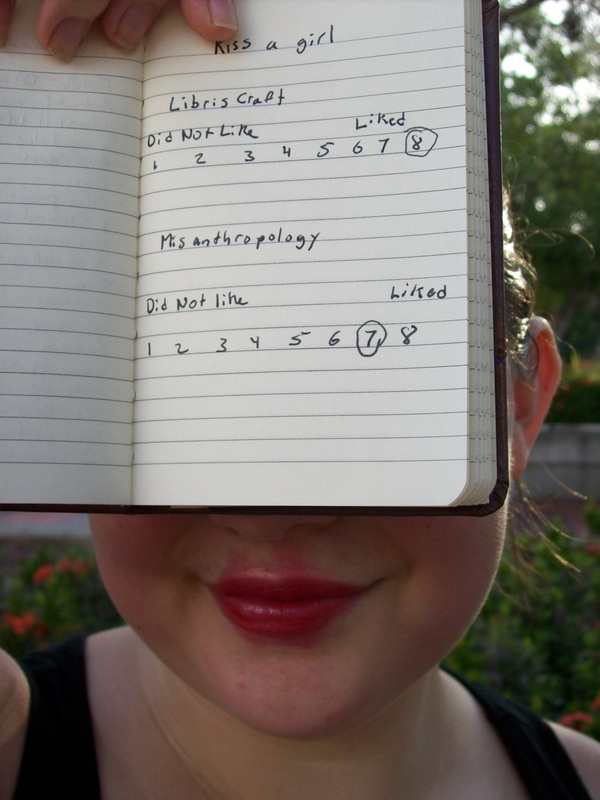 Kiss a girl
Libris Craft
Did Not Like Liked
1 2 3 4 5 6 7 8
Misanthropology
Did Not like Liked
1 2 3 4 5 6 7 8